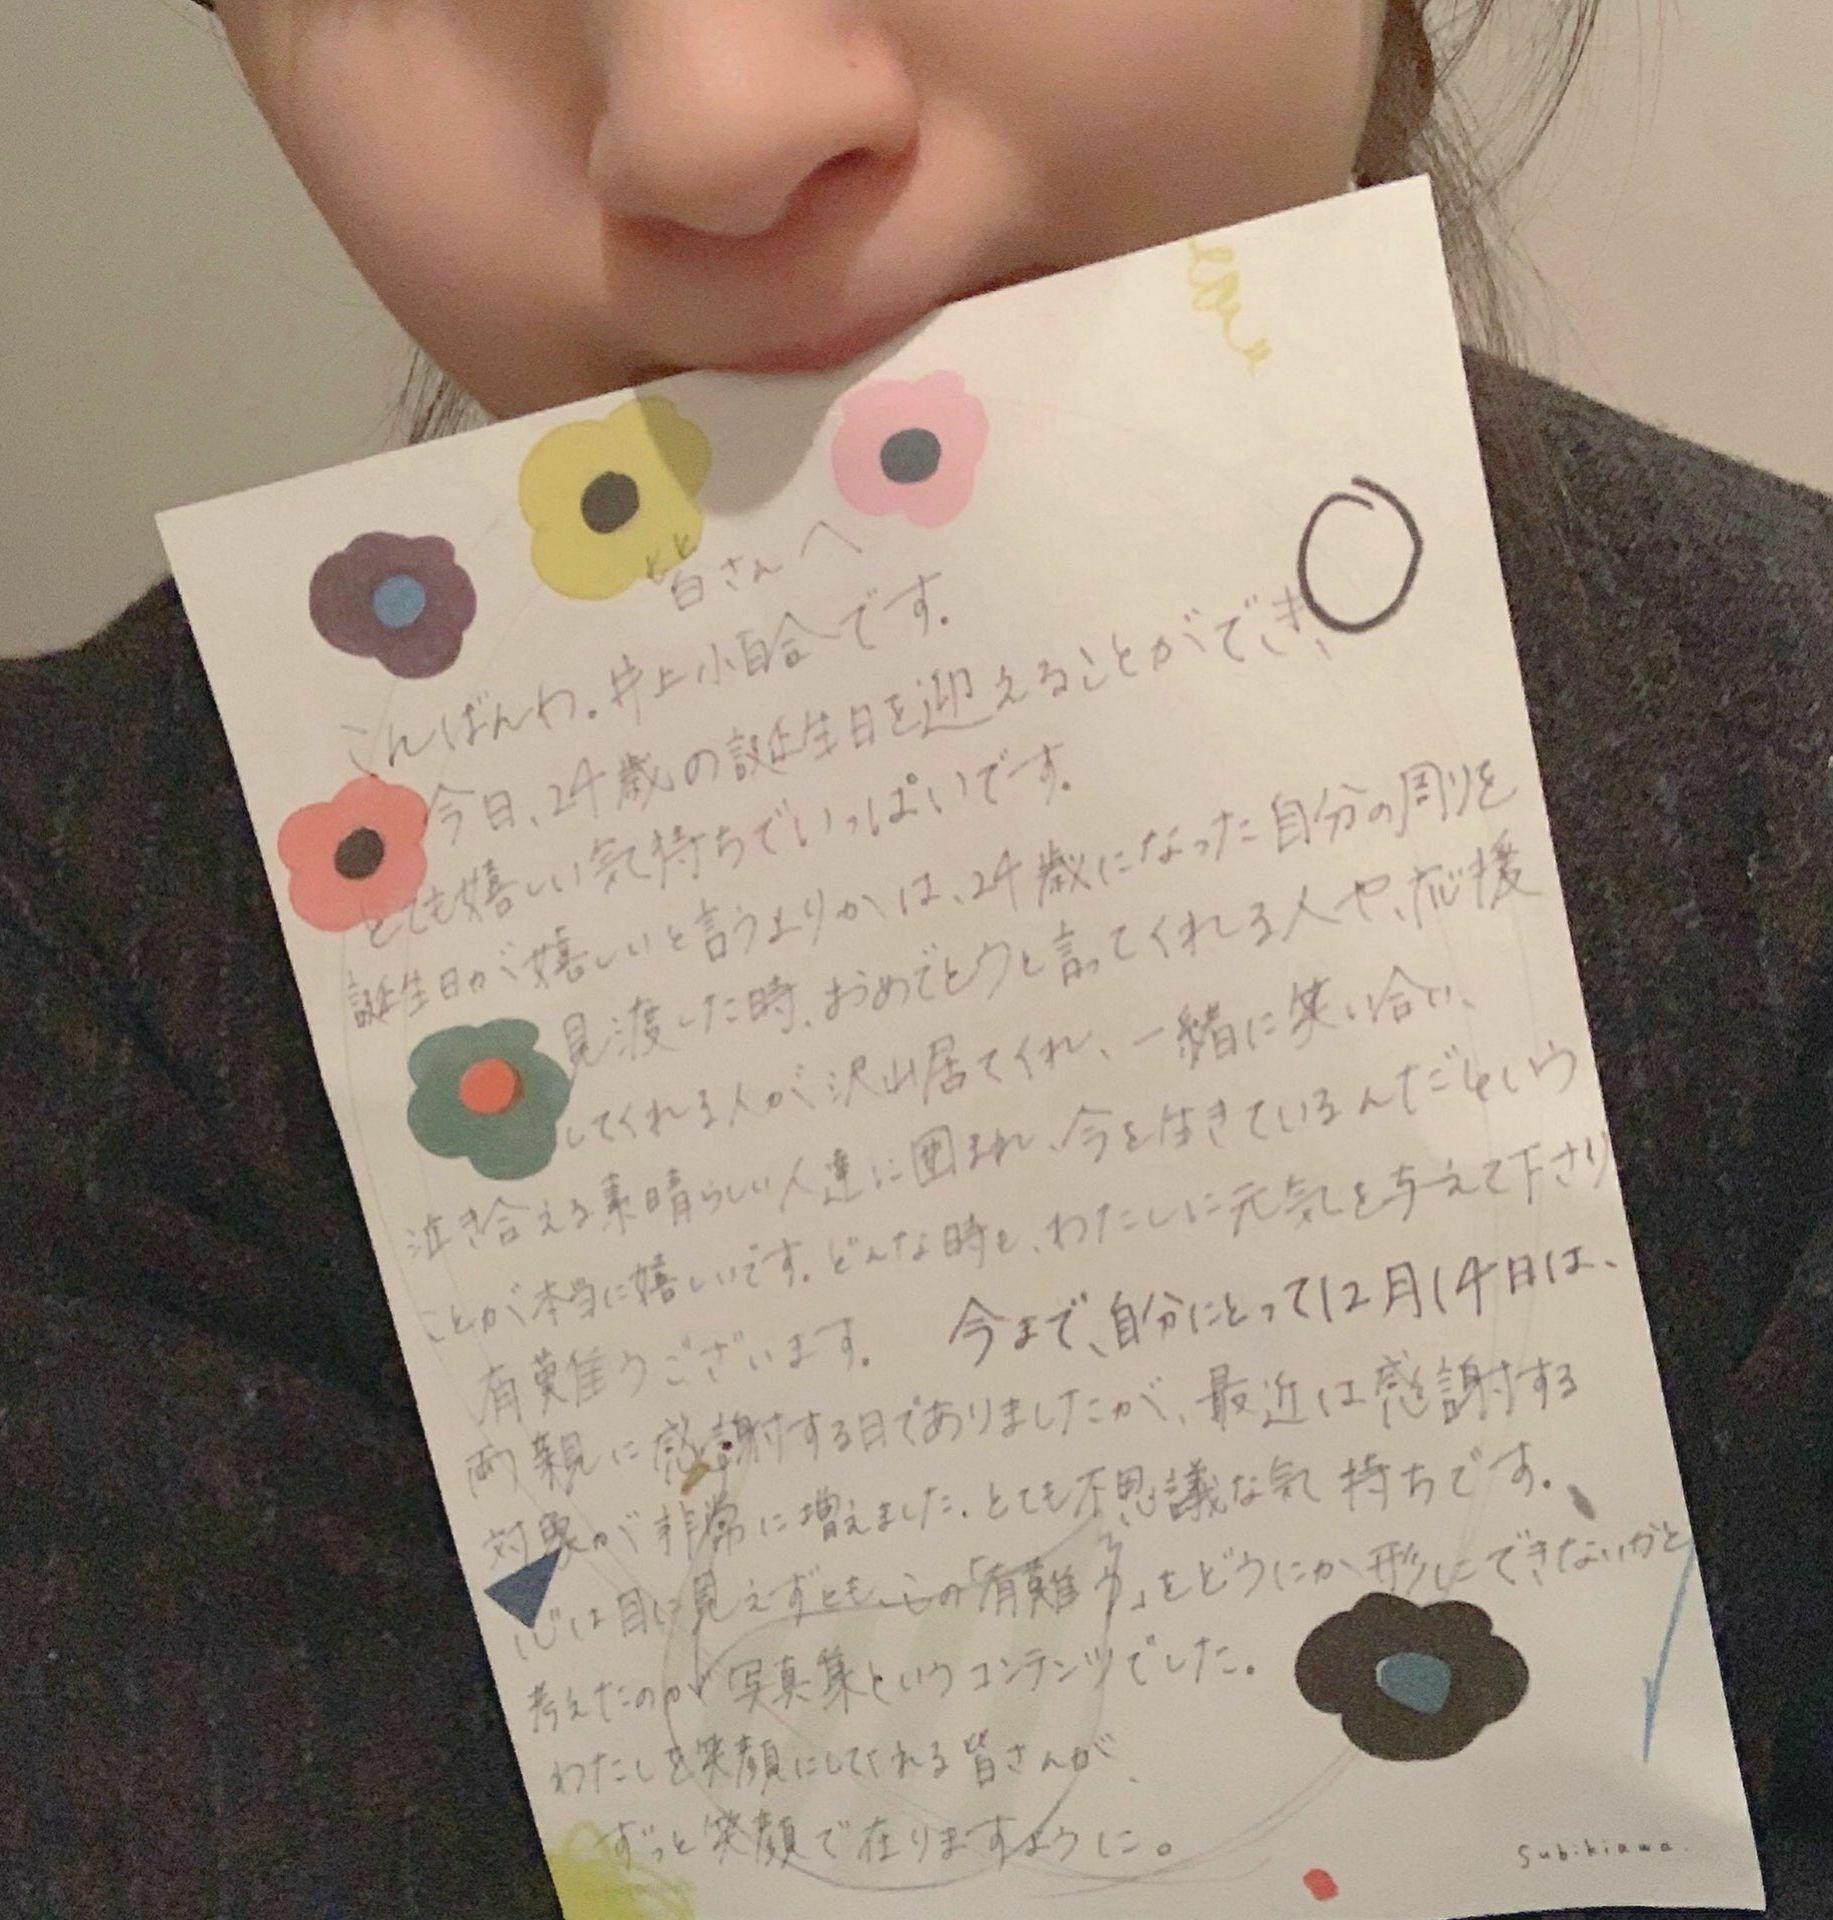 皆さんへ
こんばんわ。井上小百合です。
今日、24歳の誕生日を迎えることができ、
とても嬉しい気持ちでいっぱいです。
誕生日が嬉しいと言うよりかは、24歳になった自分の周りを
見渡した時、おめでとうと言ってくれる人や、応援
してくれる人が沢山居てくれ、一緒に笑い合い、
泣き合える素晴らしい人達に囲まれ、今を生きているんだという
ことが本当に嬉しいです。どんな時も、わたしに元気を与えて下さり
有難うございます。 今まで、自分にとって12月14日は、
両親に感謝する日でありましたが、最近は感謝する
対象が非常に増えました。とても不思議な気持ちです。
心は目に見えずとも、心の「有難う」をどうにか形にできないかと
考えたのが写真集というコンテンツでした。
わたしを笑顔にしてくれる皆さんが、
ずっと笑顔で在りますように。
Subikiawa.